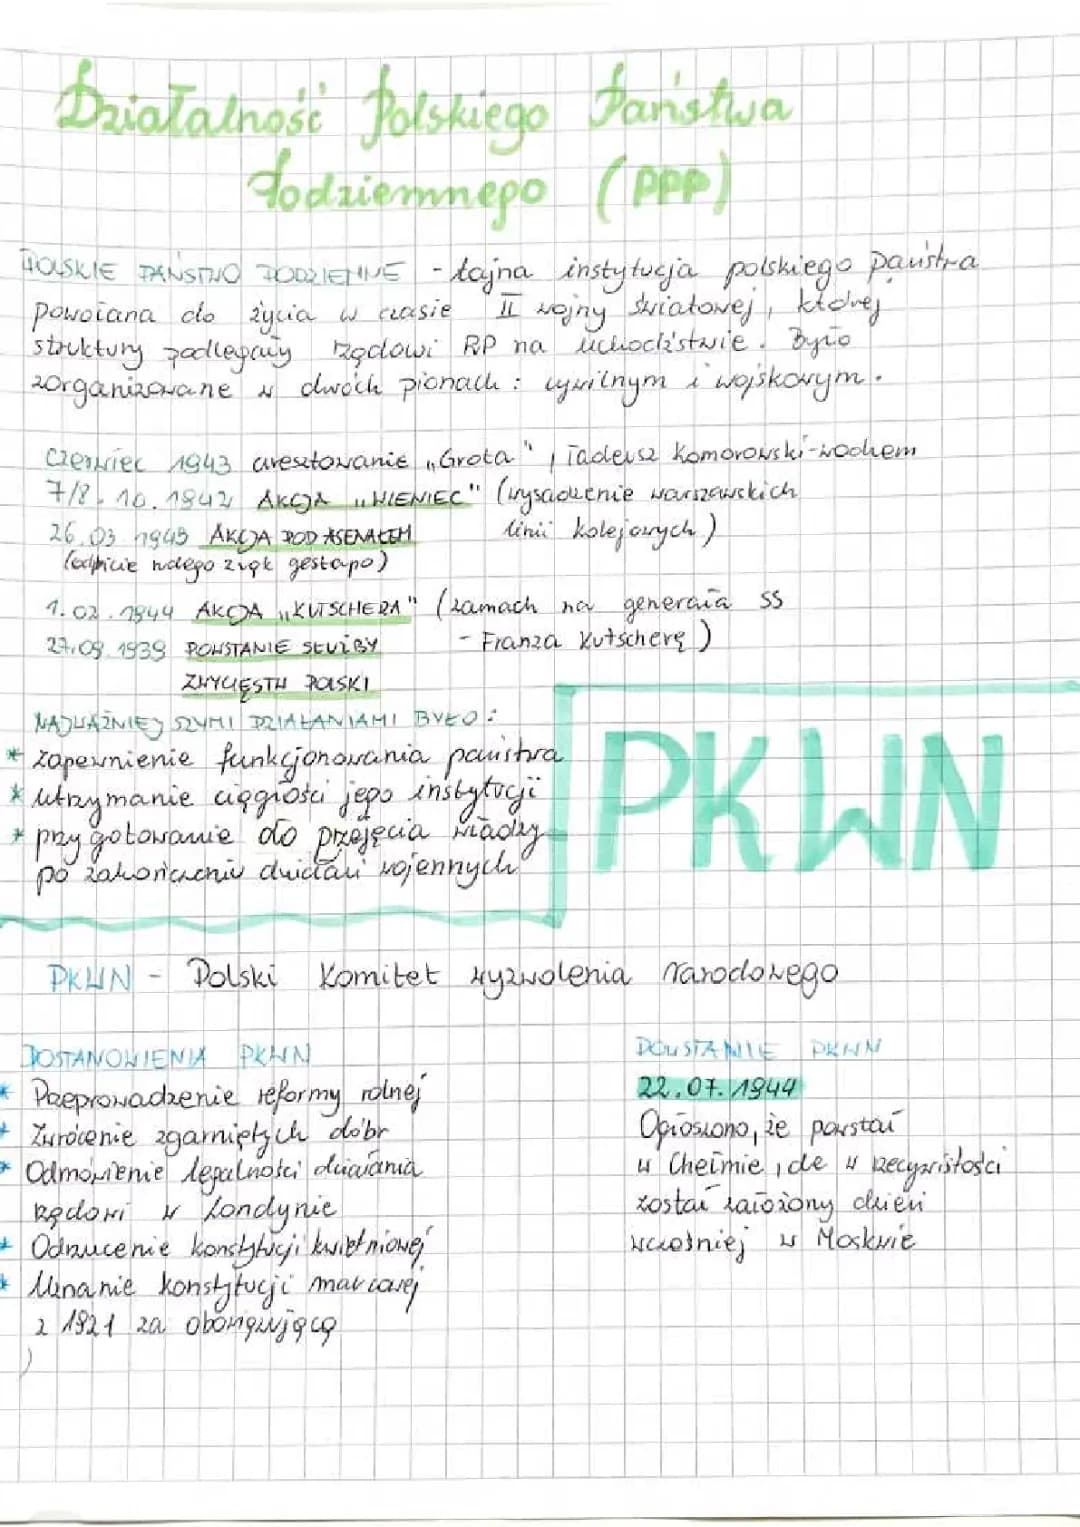 Działalność Polskiego Państwa
Podziemnego (PPP)
POLSKIE PAŃSTWO PODZIEMNE - tajna instytucja polskiego państwa
powołana do życia w czasie II wojny światowej, której
struktury podlegały rządowi RP na uchodźstwie. Było
zorganizowane w dwóch pionach: cywilnym i wojskowym.
czerwiec 1943 aresztowanie „Grota", Tadeusz Komorowski-wodzem
7/8.10.1942 AKCJA „WIENIEC" (wysadzenie warszawskich
linii kolejowych)
26.03 1943 AKCJA POD ASENAŁEM
(odbicie rudego z rąk gestapo)
1.02.1944 AKCJA „KUTSCHERA" (zamach na generała SS
- Franza Kutscherę)
27.09.1939 POWSTANIE SŁUŻBY
ZWYCIĘSTW POLSKI
NAJWAŻNIEJSZYMI DZIAŁANIAMI BYŁO:
* zapewnienie funkcjonowania państwa
* utrzymanie ciągłości jego instytucji
* przygotowanie do przejęcia władzy
po zakończeniu działań wojennych
PKWN
PKWN - Polski Komitet wyzwolenia narodowego
POSTANOWIENIA PKWN
* Przeprowadzenie reformy rolnej
* Zwrócenie zgarniętych dóbr
* Odmówienie legalności działania
rządowi w Londynie
* Odrzucenie konstytucji kwietniowej
* Uznanie konstytucji marcowej
z 1921 za obowiązującą
POWSTANIE PKWN
22.07.1944
Ogłoszono, że powstał
w Chełmie, ale w rzeczywistości
został założony dzień
wcześniej w Moskwie